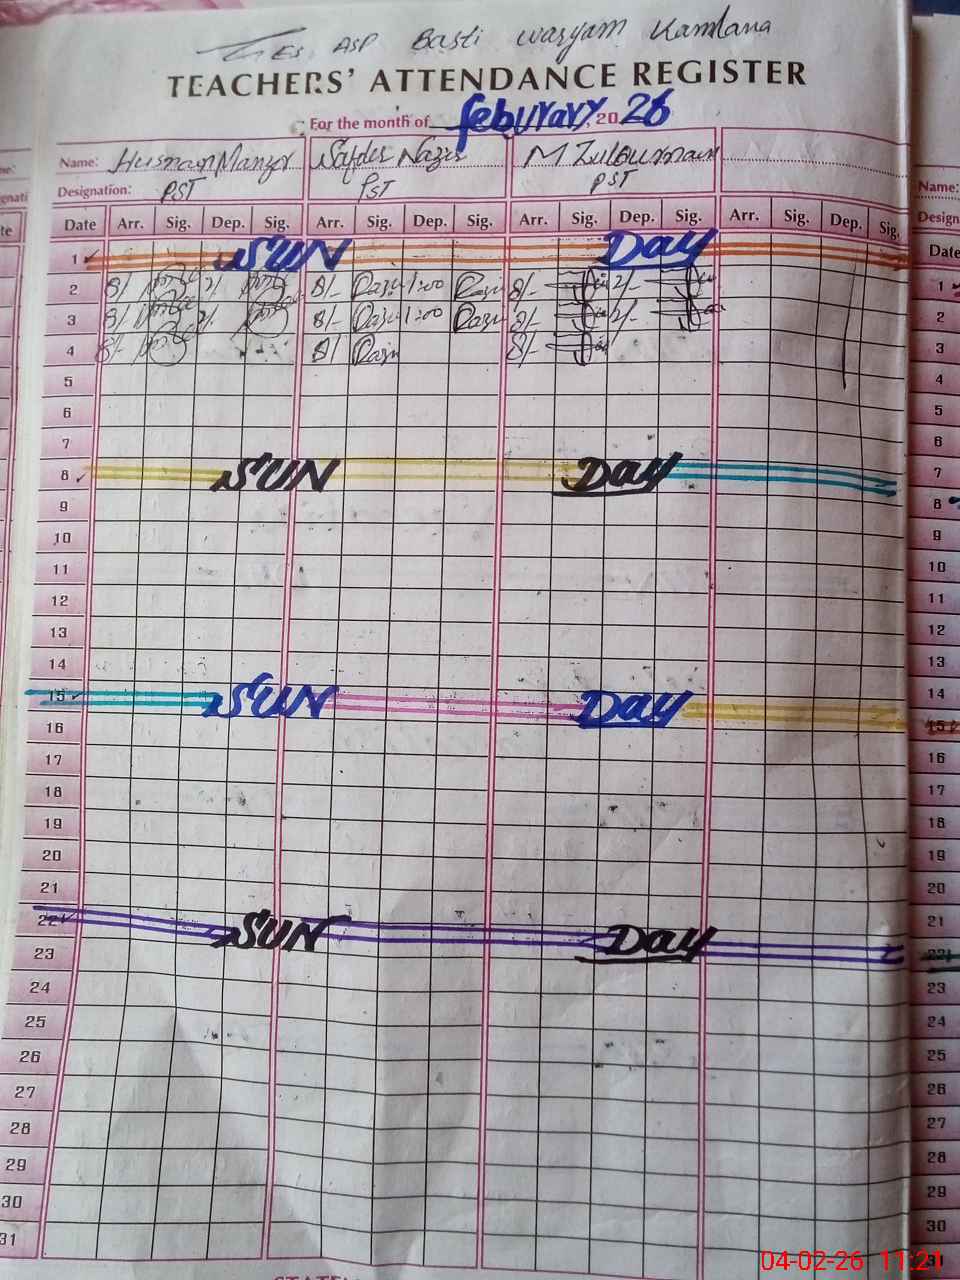 ES ASP Basti waryam Kamlana
TEACHERS' ATTENDANCE REGISTER
For the month of feburary, 2026
Name: Husnain Manzor Safder Nazir M Zulqurnain
Designation: PST PST PST
Date Arr. Sig. Dep. Sig. Arr. Sig. Dep. Sig. Arr. Sig. Dep. Sig. Arr. Sig. Dep. Sig.
1 SUN Day
2 8/- 2/ 8/- 1:00 8/- 2/-
3 8/- 2/- 8/- 1:00 8/- 2/-
4 8/- 8/ 8/-
5
6
7
8 SUN Day
9
10
11
12
13
14
15 SUN Day
16
17
18
19
20
21
22 SUN Day
23
24
25
26
27
28
29
30
31
Name:
Design
Date
1
2
3
4
5
6
7
8
9
10
11
12
13
14
15
16
17
18
19
20
21
22
23
24
25
26
27
28
29
30
04-02-26 11:21